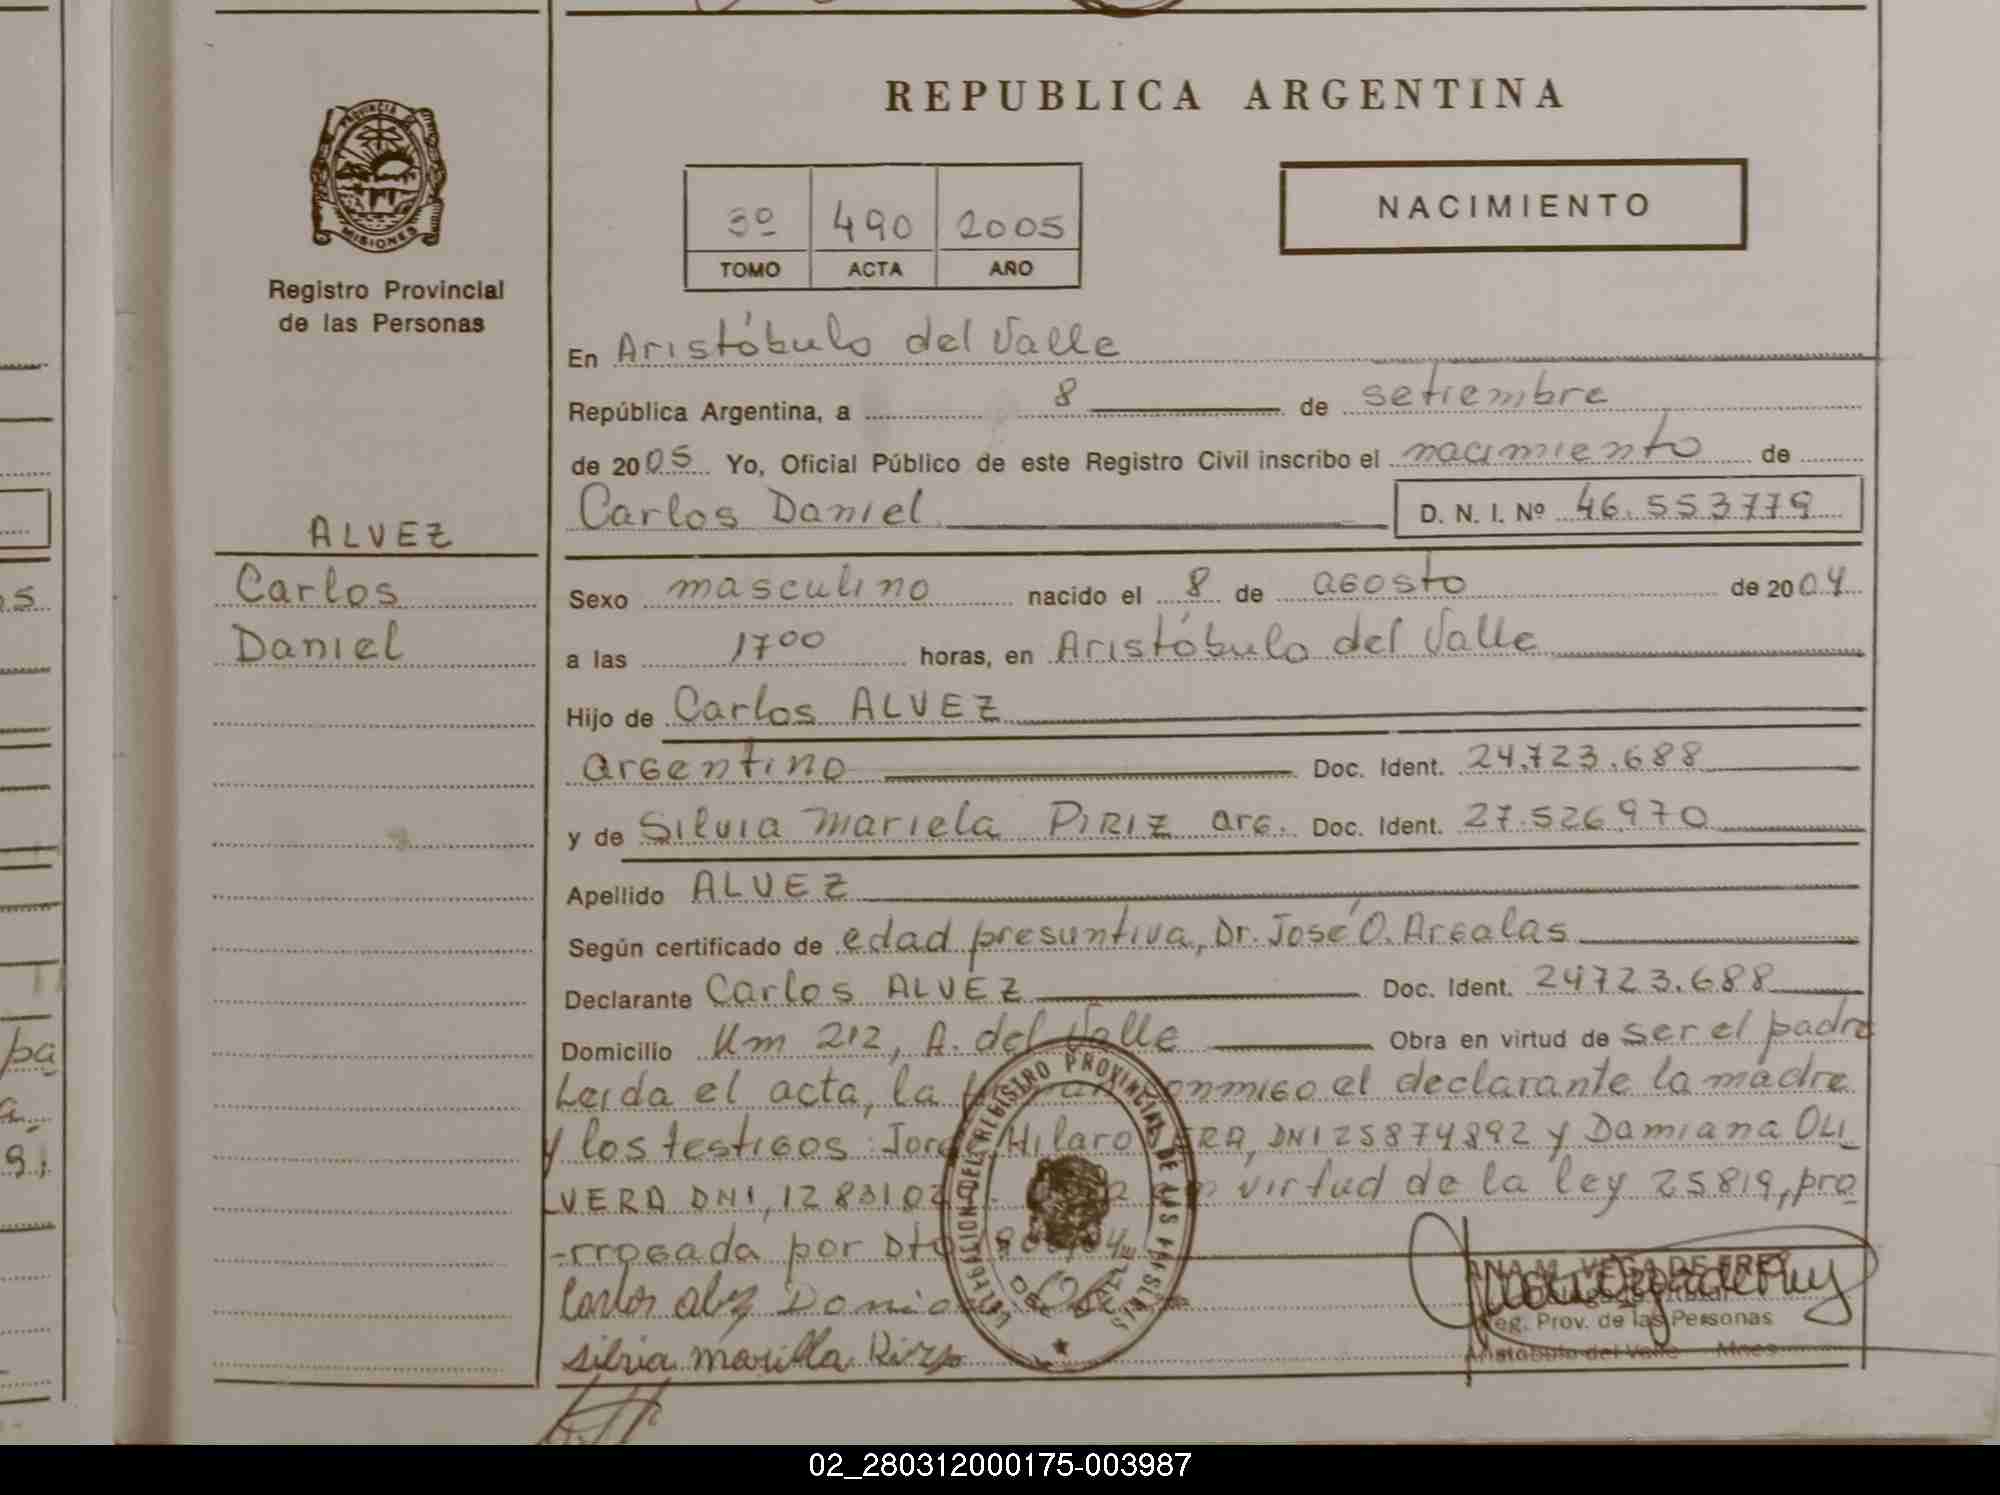 REPUBLICA ARGENTINA
PROVINCIA DE
MISIONES
Registro Provincial
de las Personas
3º 490 2005
TOMO ACTA AÑO
NACIMIENTO
En Aristóbulo del Valle
República Argentina, a 8 de setiembre
de 2005 Yo, Oficial Público de este Registro Civil inscribo el nacimiento de
Carlos Daniel D. N. I. Nº 46.553779
ALVEZ
Carlos
Daniel
Sexo masculino nacido el 8 de agosto de 2004
a las 1700 horas, en Aristóbulo del Valle
Hijo de Carlos ALVEZ
argentino Doc. Ident. 24.723.688
y de Silvia Mariela PIRIZ arg. Doc. Ident. 27.526.970
Apellido ALVEZ
Según certificado de edad presuntiva, Dr. José O. Argalas
Declarante Carlos ALVEZ Doc. Ident. 24723.688
Domicilio Km 212, A. del Valle Obra en virtud de ser el padre
Leida el acta, la conmigo el declarante la madre
y los testigos: Jorge Hilario DNI 25874892 y Damiana OLI
VERA DNI, en virtud de la ley 25819, pro
-rrogada por Dto
Carlos albez
silvia mariella Pirys
DELEGACION DEL REGISTRO PROVINCIAL DE LAS PERSONAS
DEL VALLE
ANA M. VEGA DE FREY
Reg. Prov. de las Personas
Aristóbulo del Valle - Mnes
pa
02_280312000175-003987